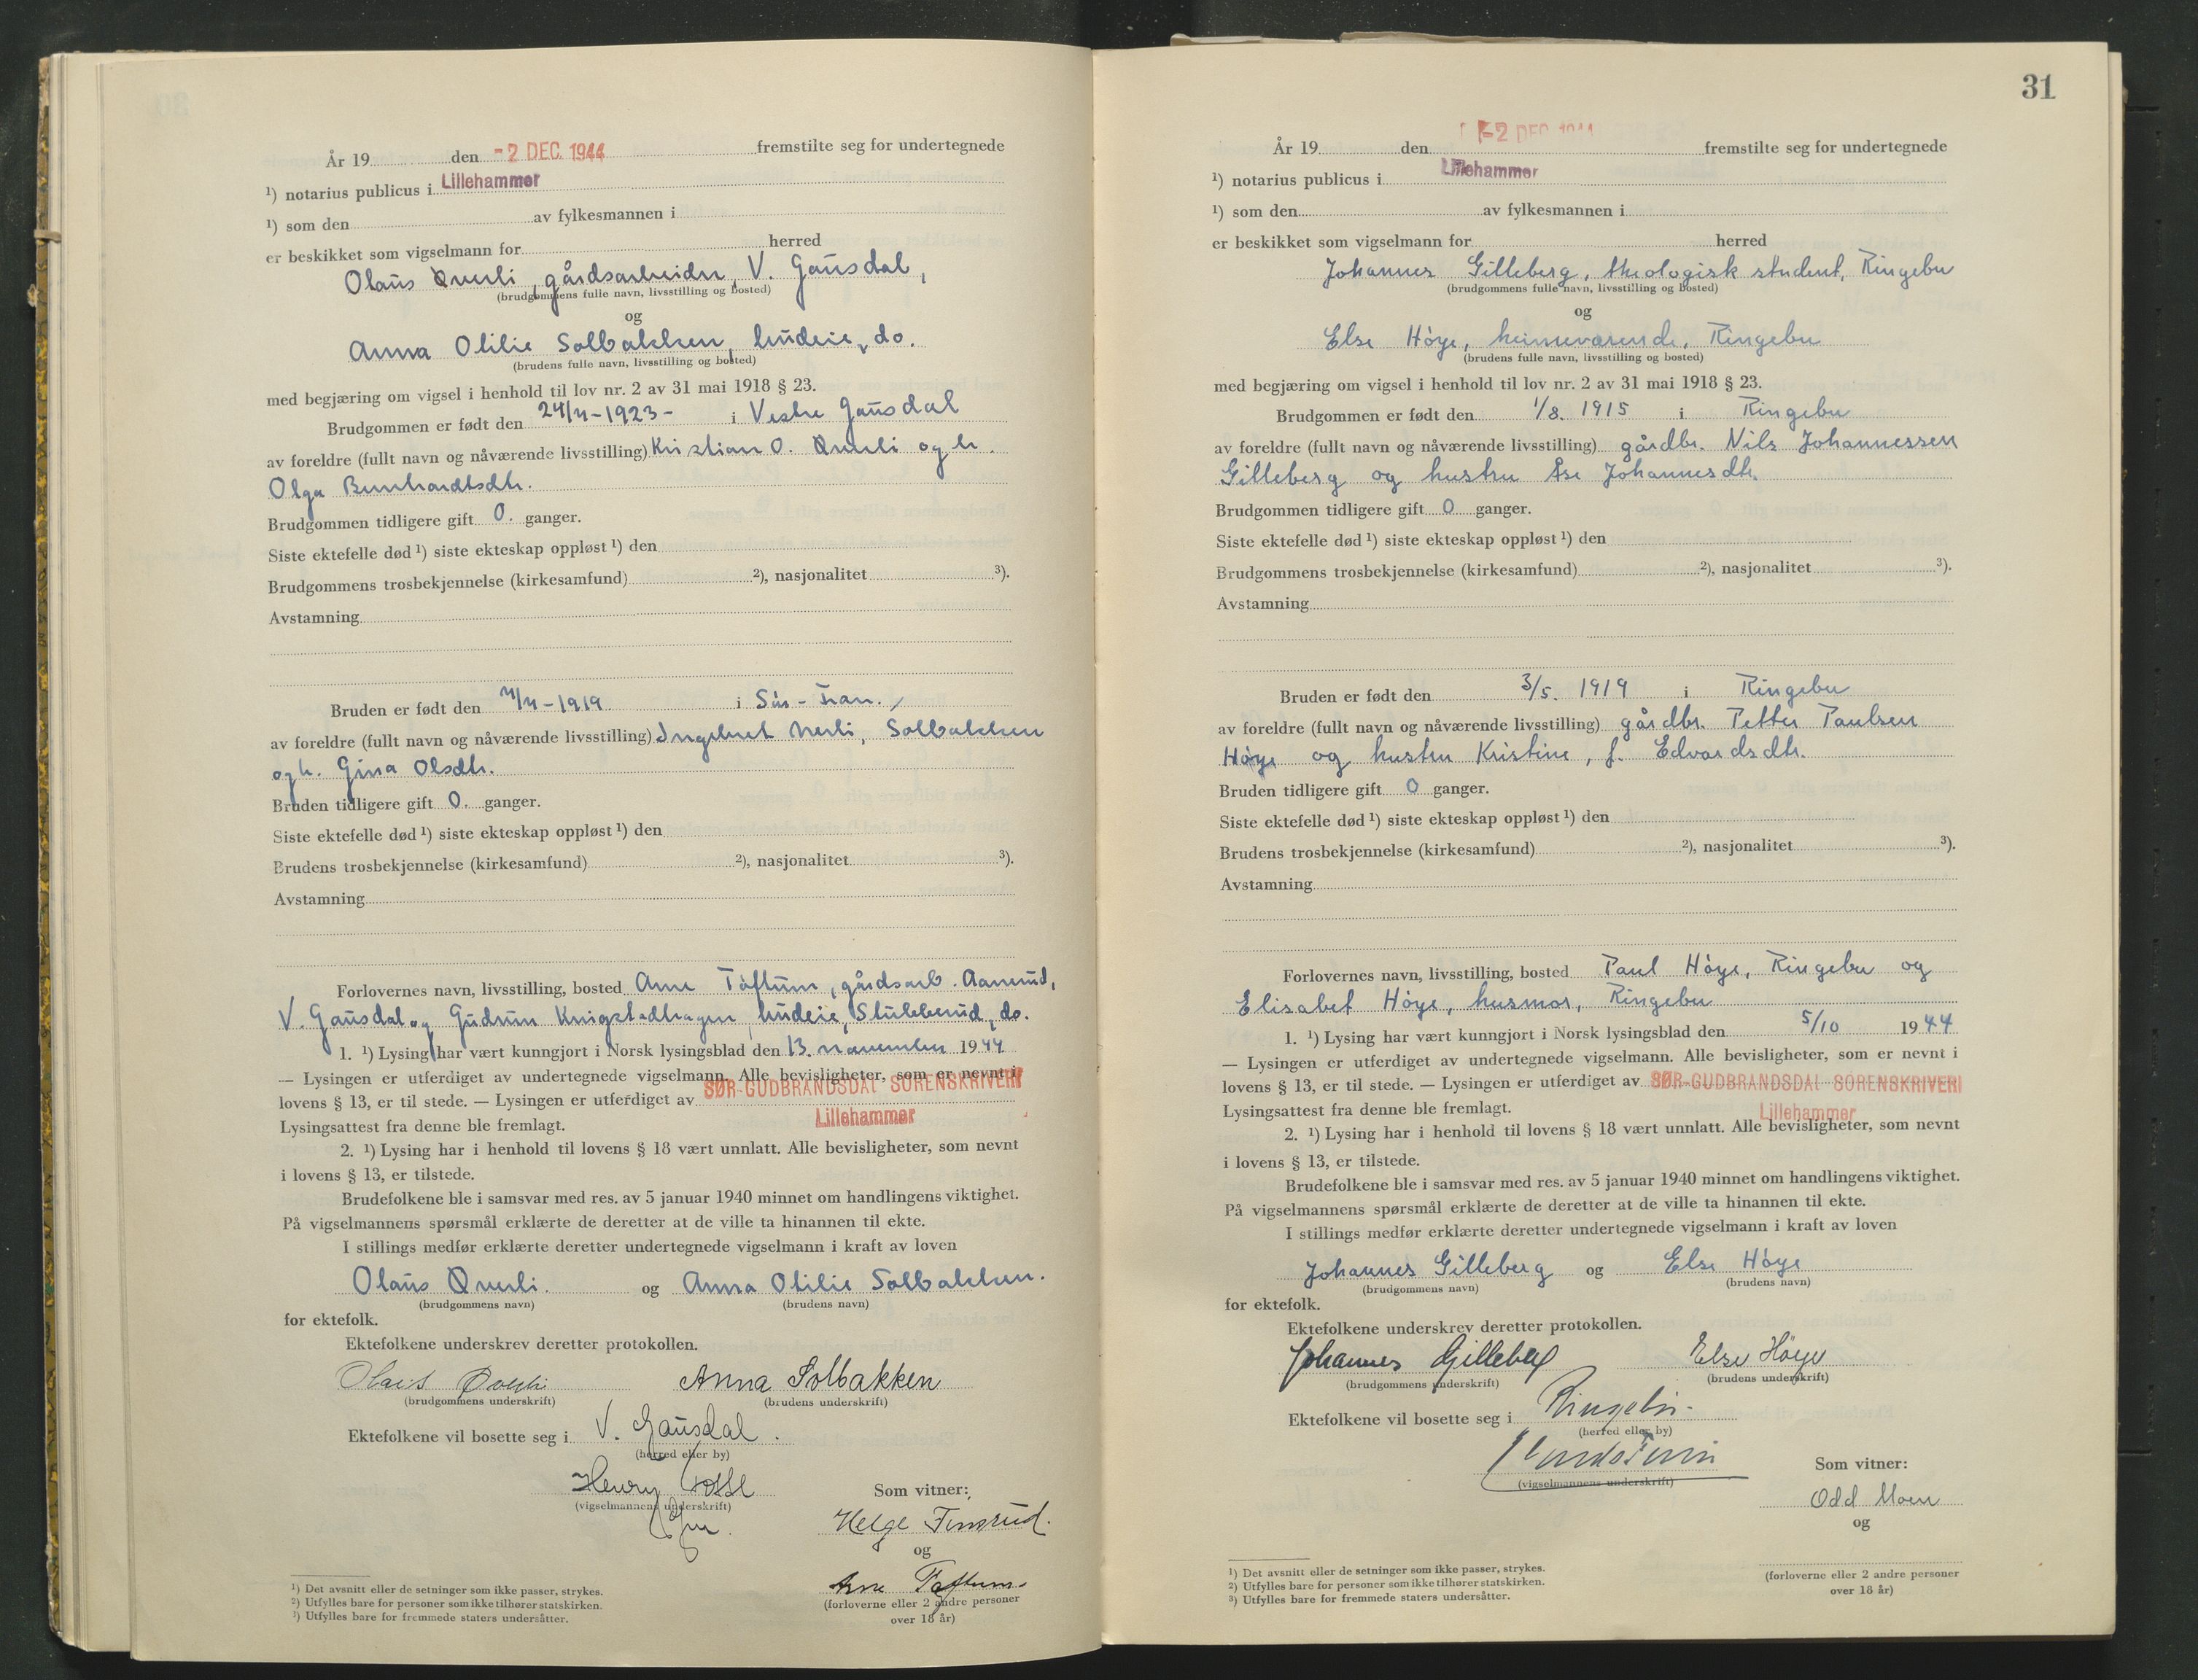 År 19 den -2 DEC. 1944 fremstilte seg for undertegnede
¹) notarius publicus i Lillehammer
¹) som den av fylkesmannen i
er beskikket som vigselmann for herred
Olaus Qverli, gårdsarbeider, V. Gausdal,
(brudgommens fulle navn, livsstilling og bosted)
og
Anna Otilie Solbakken, budeie, do.
(brudens fulle navn, livsstilling og bosted)
med begjæring om vigsel i henhold til lov nr. 2 av 31 mai 1918 § 23.
Brudgommen er født den 24/4-1923- i Vestre Gausdal
av foreldre (fullt navn og nåværende livsstilling) Kristian O. Qverli og h.
Olga Bernhardtsdtr.
Brudgommen tidligere gift 0. ganger.
Siste ektefelle død ¹) siste ekteskap oppløst ¹) den
Brudgommens trosbekjennelse (kirkesamfund) ²), nasjonalitet ³).
Avstamning
Bruden er født den /4-1919 i Sør-Fron.
av foreldre (fullt navn og nåværende livsstilling) Ingebret Solbakken
og h. Gina Olsdtr.
Bruden tidligere gift 0. ganger.
Siste ektefelle død ¹) siste ekteskap oppløst ¹) den
Brudens trosbekjennelse (kirkesamfund) ²), nasjonalitet ³).
Avstamning
Forlovernes navn, livsstilling, bosted Arne Tøftum, gårdsarb. Aamrud,
V. Gausdal og Gudrun budeie, Stubberud, do.
1. ¹) Lysing har vært kunngjort i Norsk lysingsblad den 13. november 1944
— Lysingen er utferdiget av undertegnede vigselmann. Alle bevisligheter, som er nevnt i
lovens § 13, er til stede. — Lysingen er utferdiget av SØR-GUDBRANDSDAL SORENSKRIVERI
Lysingsattest fra denne ble fremlagt. Lillehammer
2. ¹) Lysing har i henhold til lovens § 18 vært unnlatt. Alle bevisligheter, som nevnt
i lovens § 13, er tilstede.
Brudefolkene ble i samsvar med res. av 5 januar 1940 minnet om handlingens viktighet.
På vigselmannens spørsmål erklærte de deretter at de ville ta hinannen til ekte.
I stillings medfør erklærte deretter undertegnede vigselmann i kraft av loven
Olaus Qverli. og Anna Otilie Solbakken.
(brudgommens navn) (brudens navn)
for ektefolk.
Ektefolkene underskrev deretter protokollen.
Olaus Qverli Anna Solbakken
(brudgommens underskrift) (brudens underskrift)
Ektefolkene vil bosette seg i V. Gausdal.
(herred eller by)
Henry
(vigselmannens underskrift) Som vitner:
Helge Finsrud.
og
Arne Tøftum
(forloverne eller 2 andre personer
over 18 år)
¹) Det avsnitt eller de setninger som ikke passer, strykes.
²) Utfylles bare for personer som ikke tilhører statskirken.
³) Utfylles bare for fremmede staters undersåtter.
31
År 19 den -2 DEC. 1944 fremstilte seg for undertegnede
¹) notarius publicus i Lillehammer
¹) som den av fylkesmannen i
er beskikket som vigselmann for herred
Johannes Gilleberg, theologisk student, Ringebu
(brudgommens fulle navn, livsstilling og bosted)
og
Else Høye, heimeværende, Ringebu
(brudens fulle navn, livsstilling og bosted)
med begjæring om vigsel i henhold til lov nr. 2 av 31 mai 1918 § 23.
Brudgommen er født den 1/8. 1915 i Ringebu
av foreldre (fullt navn og nåværende livsstilling) gårdbr. Nils Johannessen
Gilleberg og hustru Åse Johannesdtr.
Brudgommen tidligere gift 0 ganger.
Siste ektefelle død ¹) siste ekteskap oppløst ¹) den
Brudgommens trosbekjennelse (kirkesamfund) ²), nasjonalitet ³).
Avstamning
Bruden er født den 3/5. 1919 i Ringebu
av foreldre (fullt navn og nåværende livsstilling) gårdbr. Petter Paulsen
Høye og hustru Kristine, f. Edvardsdtr.
Bruden tidligere gift 0 ganger.
Siste ektefelle død ¹) siste ekteskap oppløst ¹) den
Brudens trosbekjennelse (kirkesamfund) ²), nasjonalitet ³).
Avstamning
Forlovernes navn, livsstilling, bosted Paul Høye, Ringebu og
Elisabet Høye, husmor, Ringebu
1. ¹) Lysing har vært kunngjort i Norsk lysingsblad den 5/10 1944
— Lysingen er utferdiget av undertegnede vigselmann. Alle bevisligheter, som er nevnt i
lovens § 13, er til stede. — Lysingen er utferdiget av SØR-GUDBRANDSDAL SORENSKRIVERI
Lysingsattest fra denne ble fremlagt. Lillehammer
2. ¹) Lysing har i henhold til lovens § 18 vært unnlatt. Alle bevisligheter, som nevnt
i lovens § 13, er tilstede.
Brudefolkene ble i samsvar med res. av 5 januar 1940 minnet om handlingens viktighet.
På vigselmannens spørsmål erklærte de deretter at de ville ta hinannen til ekte.
I stillings medfør erklærte deretter undertegnede vigselmann i kraft av loven
Johannes Gilleberg og Else Høye
(brudgommens navn) (brudens navn)
for ektefolk.
Ektefolkene underskrev deretter protokollen.
Johannes Gilleberg Else Höye
(brudgommens underskrift) (brudens underskrift)
Ektefolkene vil bosette seg i Ringebu
(herred eller by)
(vigselmannens underskrift) Som vitner:
Odd Moen
og
(forloverne eller 2 andre personer
over 18 år)
¹) Det avsnitt eller de setninger som ikke passer, strykes.
²) Utfylles bare for personer som ikke tilhører statskirken.
³) Utfylles bare for fremmede staters undersåtter.